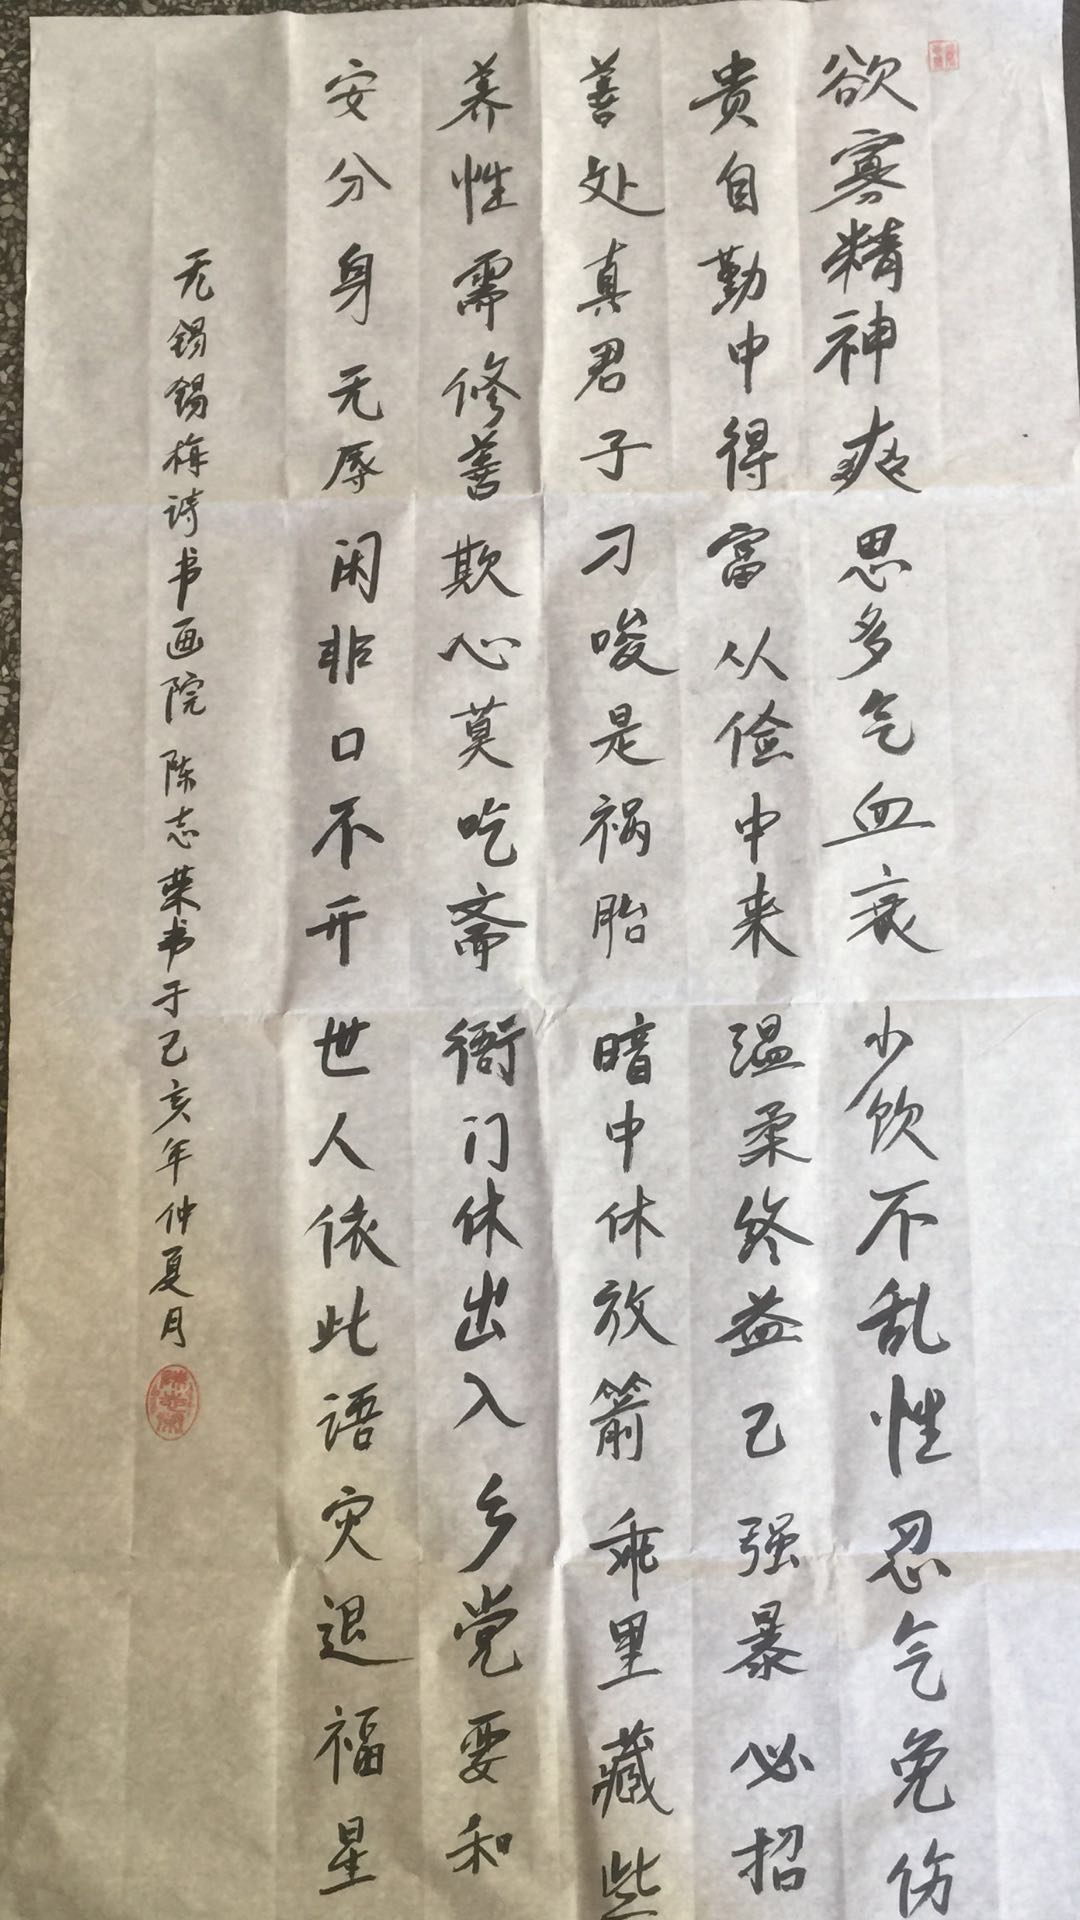 欲寡精神爽思多气血衰少饮不乱性忍气免伤
贵自勤中得富从俭中来温柔终益己强暴必招
善处真君子刁唆是祸胎暗中休放箭乖里藏些
养性需修善欺心莫吃斋衙门休出入乡党要和
安分身无辱闲非口不开世人依此语灾退福星
无锡锡梅诗书画院陈志荣书于己亥年仲夏月